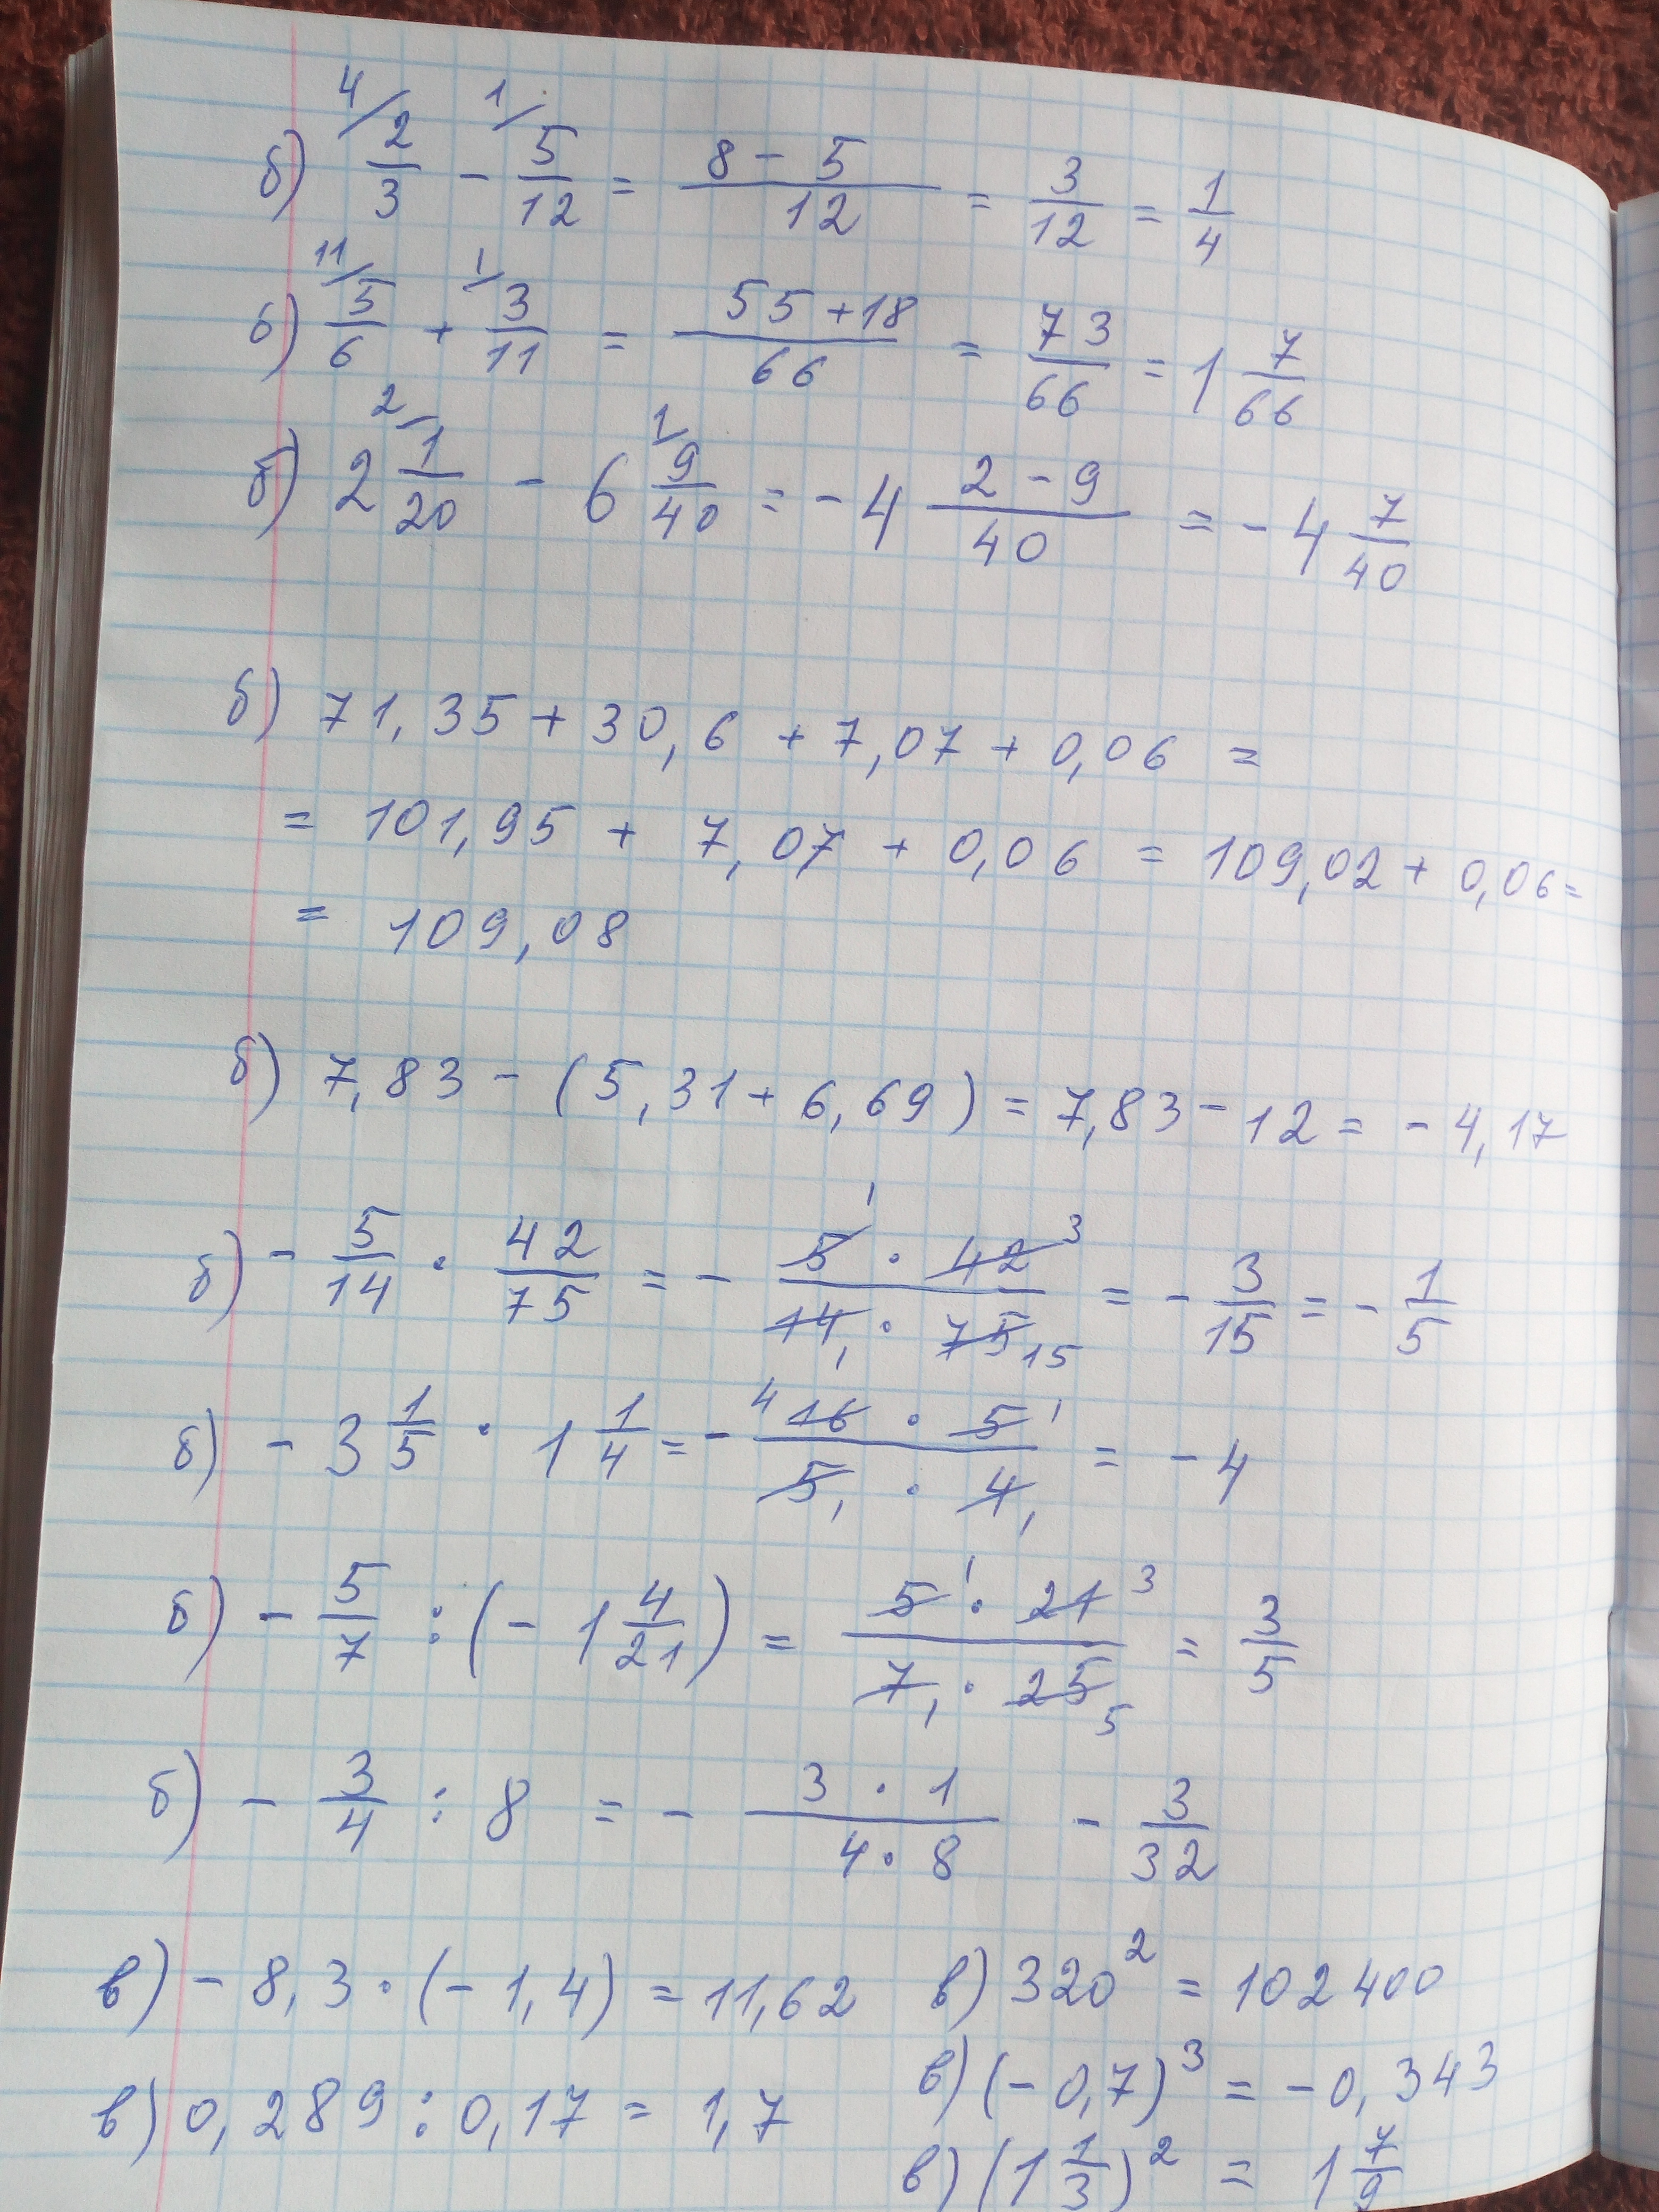 б) 4/ 2/3 - 1/ 5/12 = (8 - 5)/12 = 3/12 = 1/4
б) 11/ 5/6 + 1/ 3/11 = (55 + 18)/66 = 73/66 = 1 7/66
б) 2 2/ 1/20 - 6 1/ 9/40 = - 4 (2 - 9)/40 = - 4 7/40
б) 71,35 + 30,6 + 7,07 + 0,06 =
= 101,95 + 7,07 + 0,06 = 109,02 + 0,06 =
= 109,08
б) 7,83 - (5,31 + 6,69) = 7,83 - 12 = - 4,17
б) - 5/14 · 42/75 = - (5¹ · 42³)/(14₁ · 75₁₅) = - 3/15 = - 1/5
б) - 3 1/5 · 1 1/4 = - (⁴16 · 5¹)/(5₁ · 4₁) = - 4
б) - 5/7 : (- 1 4/21) = (5¹ · 21³)/(7₁ · 25₅) = 3/5
б) - 3/4 : 8 = - (3 · 1)/(4 · 8) - 3/32
в) - 8,3 · (- 1,4) = 11,62 в) 320² = 102400
в) 0,289 : 0,17 = 1,7 в) (- 0,7)³ = - 0,343
в) (1 1/3)² = 1 7/9